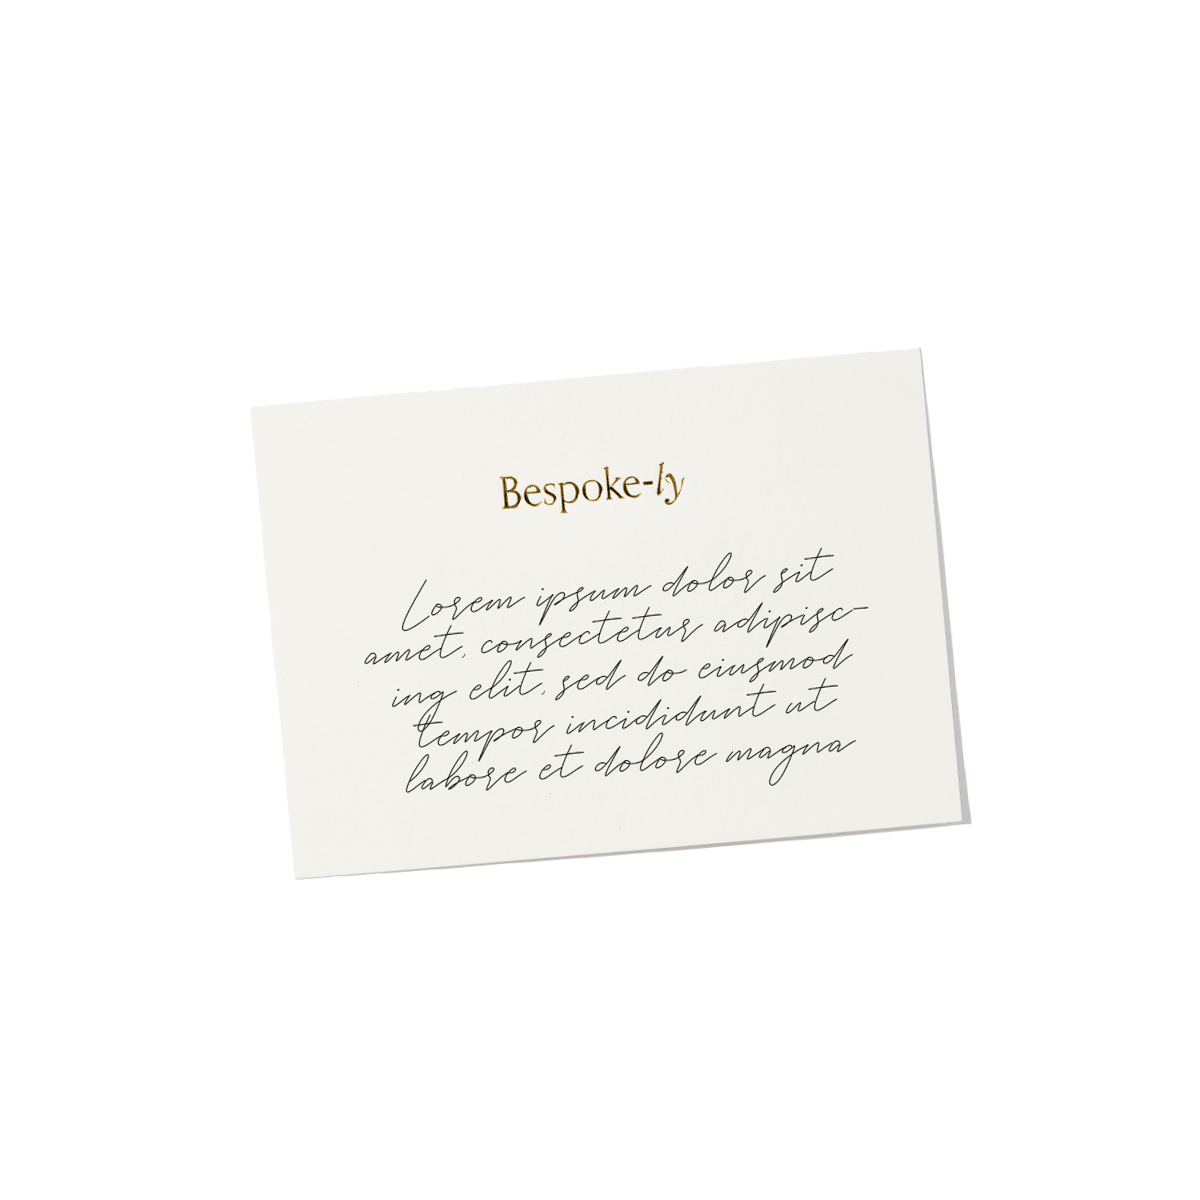 Bespoke-ly
Lorem ipsum dolor sit
amet, consectetur adipisc-
ing elit, sed do eiusmod
tempor incididunt ut
labore et dolore magna